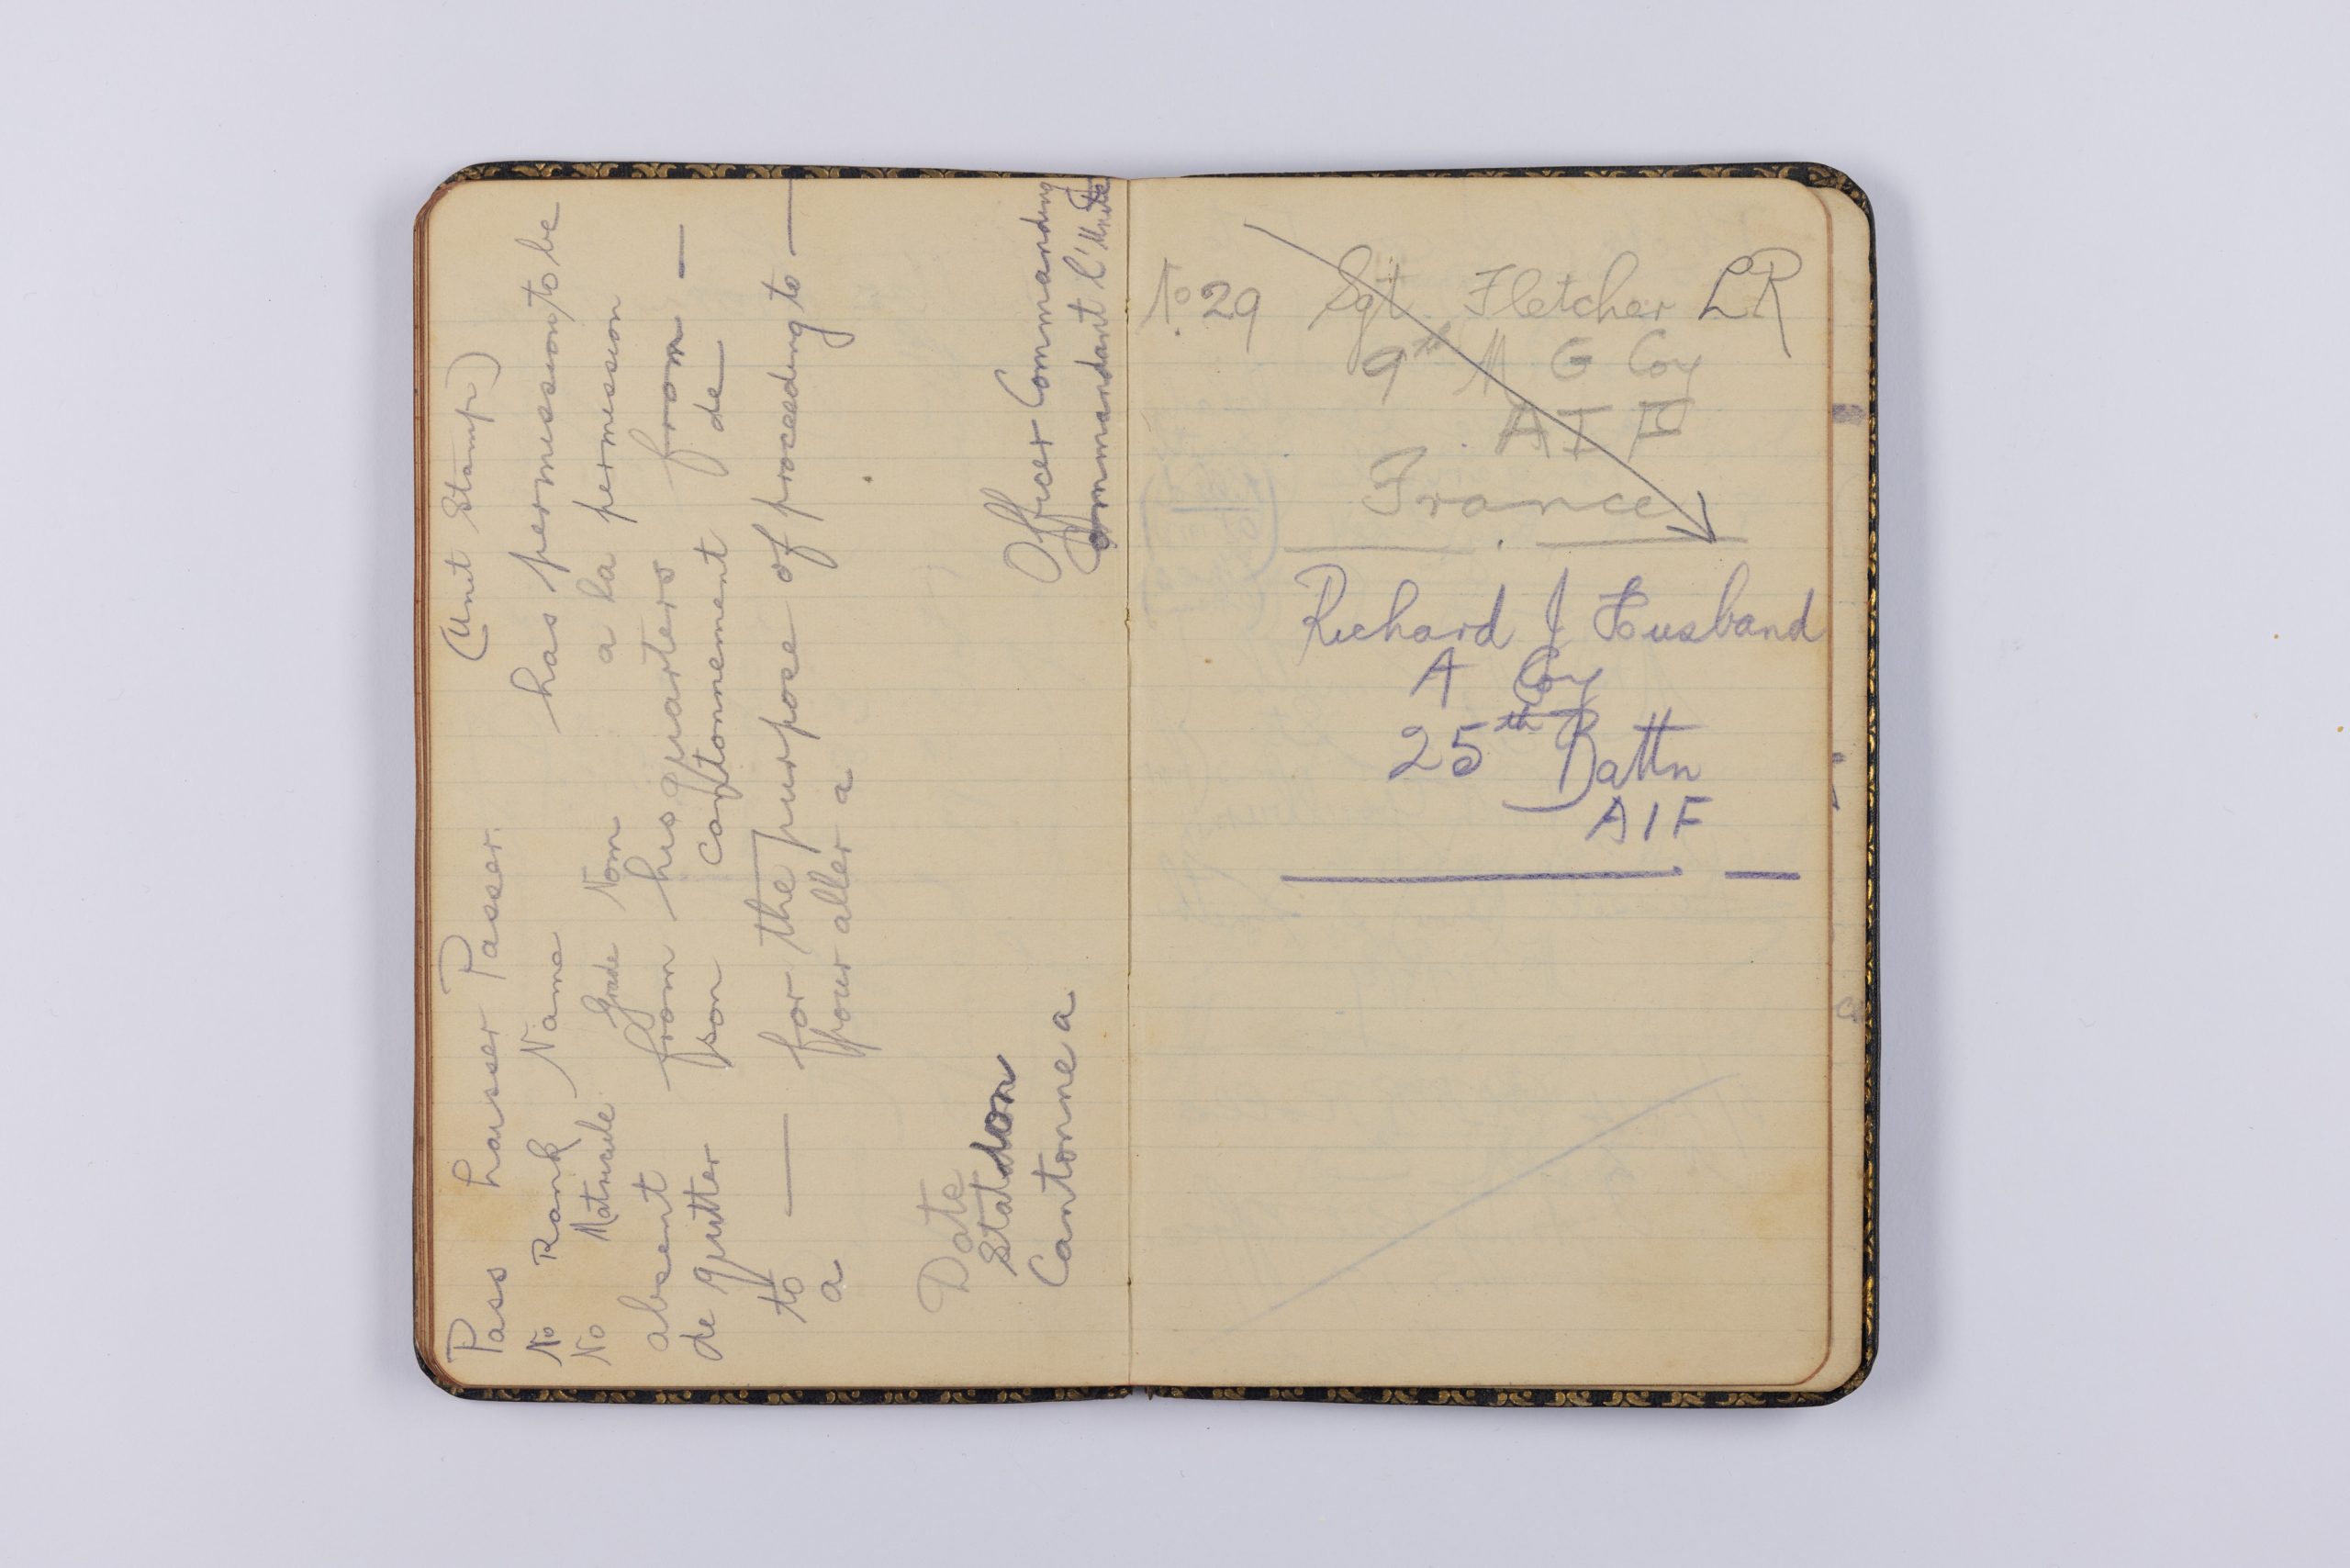 Pass laisser Passer. (Unit Stamp)
No Rank Name has permission to be
No Matricule Grade Nom a la permission
absent from his quarters from —
de quitter son cantonnement de —
to — for the purpose of proceeding to —
a pour aller a
Date
Station Officer Commanding
Cantonne a Commandant l'Unite
No 29 Sgt Fletcher LR
9th M G Coy
AIF
France
Richard J Husband
A Coy
25th Battn
AIF